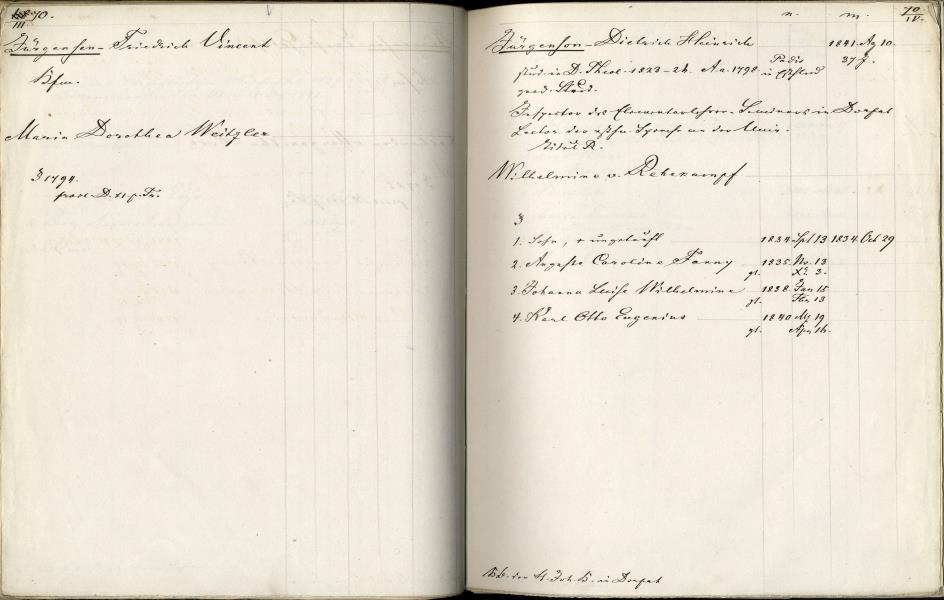 70.
III
Jürgensen - Friedrich Vincent
Kfm.
Maria Dorothea Weitzler
1794.
n. m. 70
IV.
Jürgenson - Dietrich Heinrich 1841. Ag 10.
37 J.
stud. in D. Theol. 1823-26. A.a. 1798 in
grad. Stud.
Inspector des Elementarlehrer-Seminars in Dorpat
Lector der esthn. Sprache an der Univ.
Titul. R.
Wilhelmine v. Rehekampf
1. Sohn, + ungetauft 1834. Spt 13 1834. Oct 29
2. Auguste Caroline Fanny 1835. No. 13
gt. Xr. 3.
3. Johanna Luise Wilhelmine 1838. Jan 15
gt. 13
4. Karl Otto Eugenius 1840 Mz 19
gt. Apr 16.
Kb. der St. Joh. K. in Dorpat